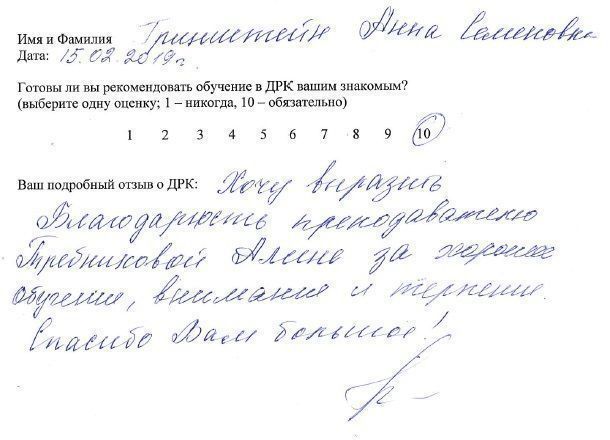 Имя и Фамилия Гринштейн Анна Семеновна
Дата: 15.02.2019г.
Готовы ли вы рекомендовать обучение в ДРК вашим знакомым?
(выберите одну оценку; 1 – никогда, 10 – обязательно)
1 2 3 4 5 6 7 8 9 10
Ваш подробный отзыв о ДРК: Хочу выразить
Благодарность преподавателю
Требниковой Алине за хорошее
обучение, внимание и терпение.
Спасибо Вам большое!